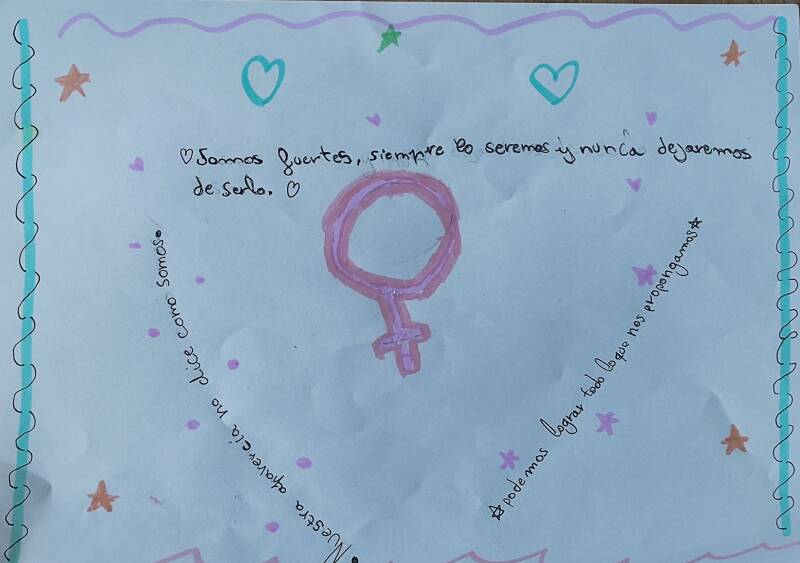 ♡Somos fuertes, siempre lo seremos y nunca dejaremos
de serlo. ♡
Nuestra apariencia no dice como somos.
☆podemos lograr todo lo que nos propongamos☆